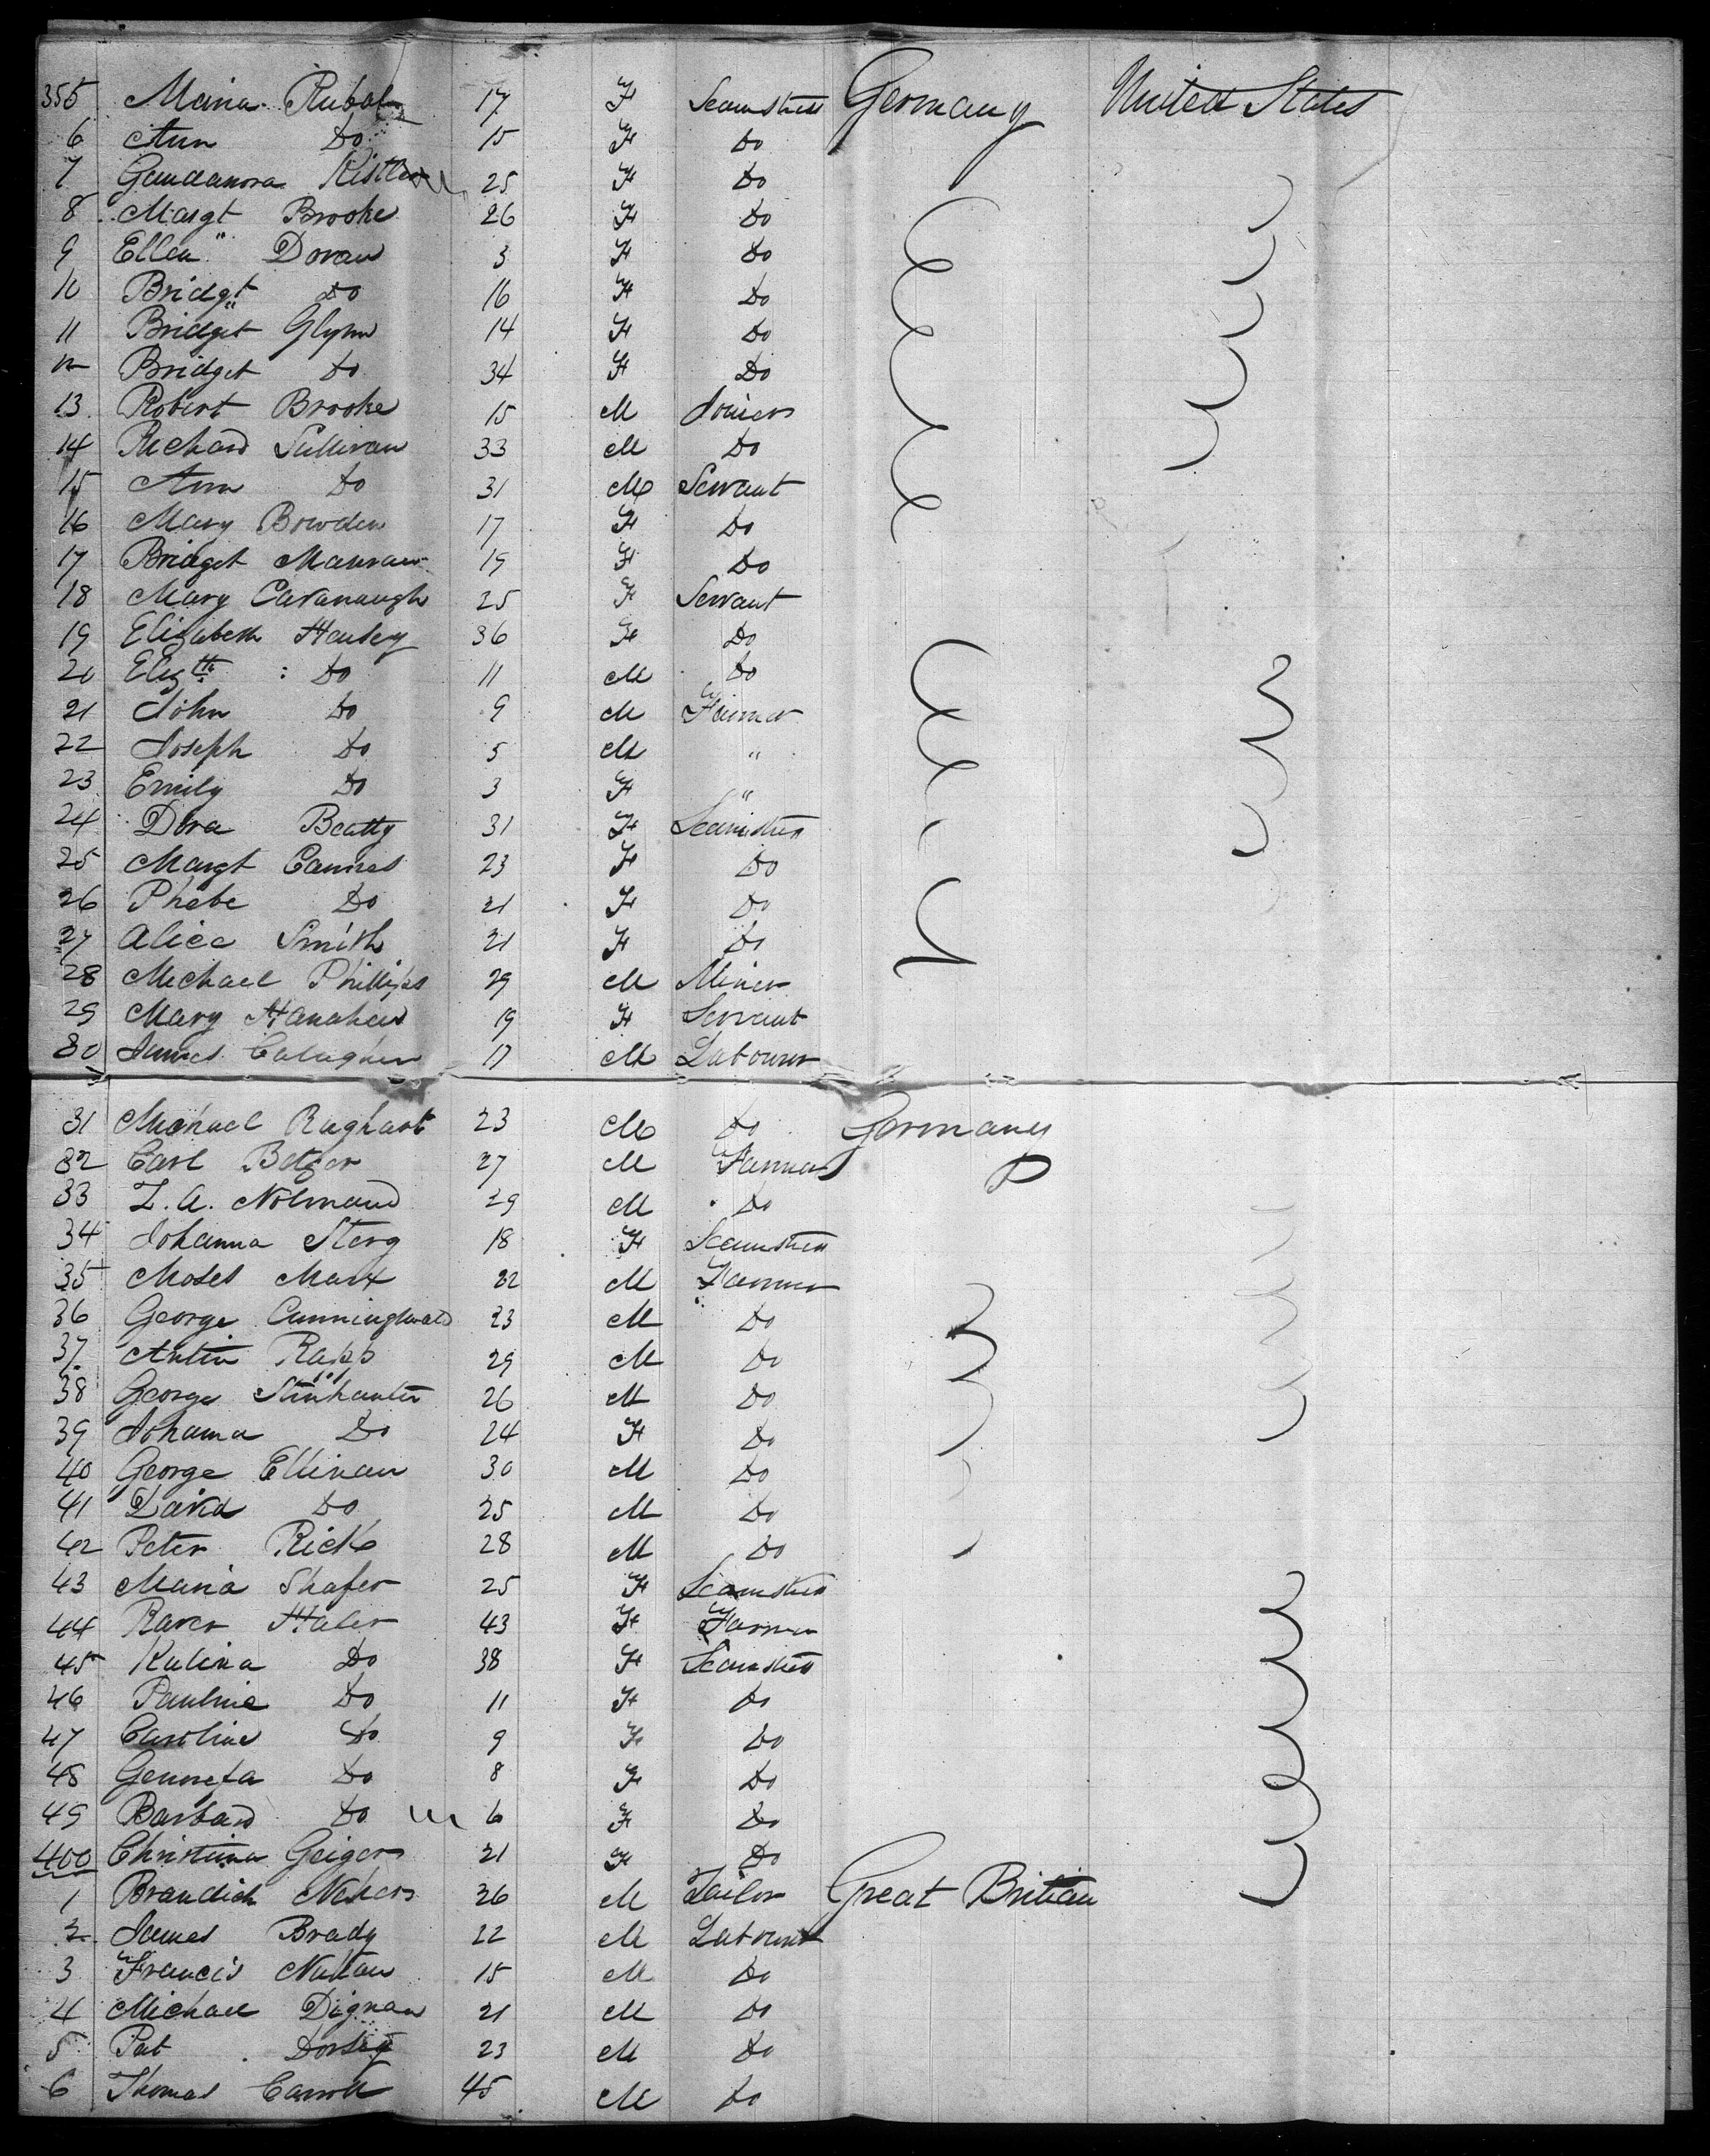 355 Maria Rubal 17 F Seamstress Germany United States
6 Ann Do 15 F Do
7 Gaudanora Kistler 25 F Do
8 Margt Brooke 26 F Do
9 Ellen " Doran 3 F Do
10 Bridgt Do 16 F Do
11 Bridget Glynn 14 F Do
12 Bridget Do 34 F Do
13 Robert Brooke 15 M Joiner
14 Richard Sullivan 33 M Do
15 Ann Do 31 M Servant
16 Mary Bowden 17 F Do
17 Bridget 19 F Do
18 Mary Cavanaugh 25 F Servant
19 Elizabeth Hensey 36 F Do
20 Elizth : Do 11 M Do
21 John Do 9 M Farmer
22 Joseph Do 5 M "
23 Emily Do 3 F "
24 Dora Beatty 31 F Seamstress
25 Margt 23 F Do
26 Phebe Do 21 F Do
27 Alice Smith 21 F Do
28 Michael Phillips 29 M Miner
29 Mary Hanahan 19 F Servant
80 James Calagher 17 M Labourer
31 Michael Raghart 23 M Do Germany
32 Carl Betzer 27 M Farmer
33 Z. A. Nolmand 29 M Do
34 Johanna Sterg 18 F Seamstress
35 Moses Marx 22 M Farmer
36 George 23 M Do
37 Antin Rapp 29 M Do
38 George Stinhauter 26 M Do
39 Johanna Do 24 F Do
40 George Ellivan 30 M Do
41 David Do 25 M Do
42 Peter Rick 28 M Do
43 Maria Shafer 25 F Seamstress
44 Raver Haler 43 F Farmer
45 Kulina Do 38 F Seamstress
46 Pauline Do 11 F Do
47 Caroline Do 9 F Do
48 Genorefa Do 8 F Do
49 Barbara Do 6 F Do
400 Christina Geiger 21 F Do
1 26 M Tailor Great Britian
2 James Brady 22 M Labourer
3 Francis 15 M Do
4 Michael Dignan 21 M Do
5 Pat Dorsey 23 M Do
6 Thomas Carroll 45 M Do